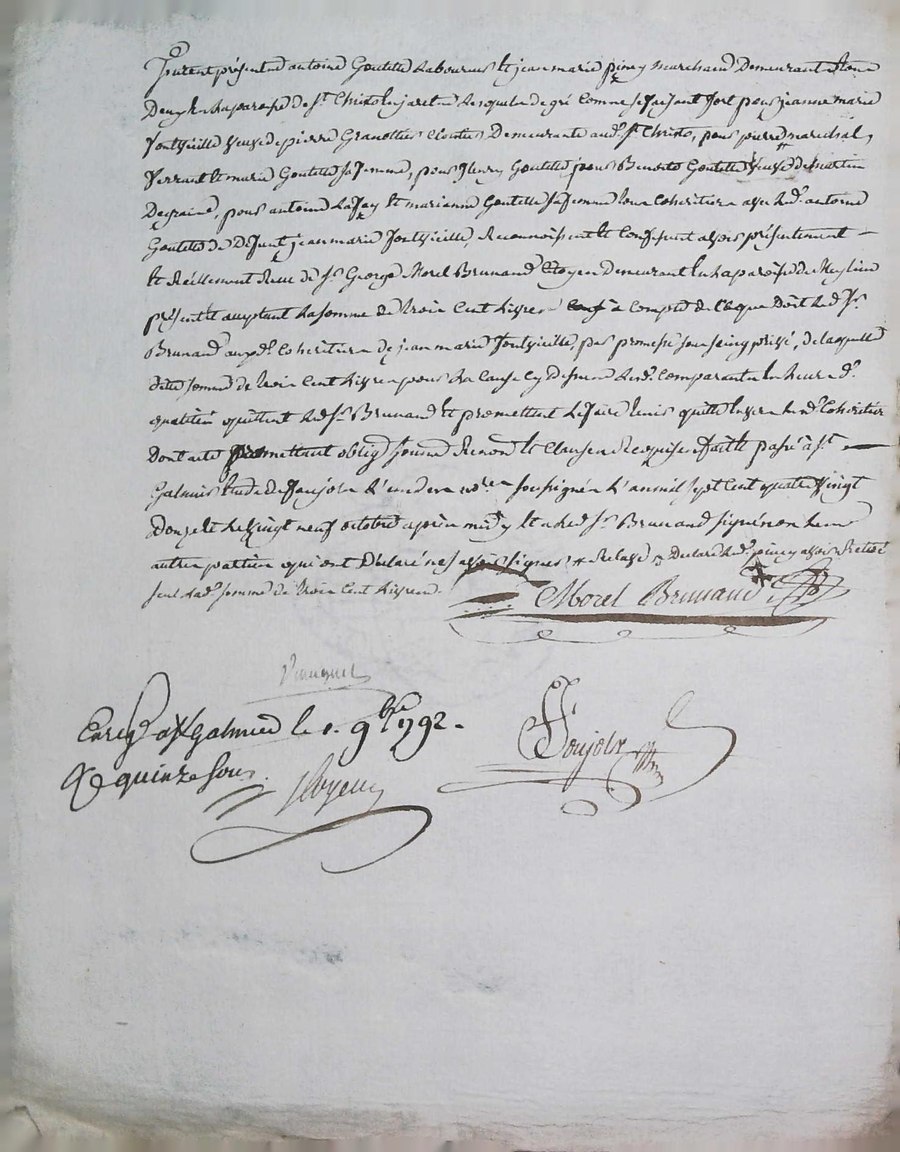 furent présents antoine Goutelle Laboureur et jean marie piney marchand Demeurant tous
Deux en la paroisse de St Christo en jarest Lesquels de gré comme se faisant fort pour jeanne marie
fontvieille veuve de pierre Granottier Cloutier Demeurante aud. St Christo, pour pierre marechal,
verrant et marie Goutelle sa femme, pour henry Goutelle, pour Benoite Goutelle veuve de martin
pour antoine et marianne Goutelle sa femme tous Cohéritiers avec Led. antoine
Goutelle de Defunt jean marie fontvieille, Reconnoissent et Confessent avoir présentement
et Réellement Reçu de Sr George Morel Brunand Citoyen Demeurant en la paroisse de
présent et acceptant La somme de trois cent Livres à compte de ce que Doit Led. Sr
Brunand auxd. Cohéritiers de jean marie fontvieille, par promesse sous seing privé, de laquelle
ditte somme de trois cent Livres pour La cause cy Dessus Lesd. Comparants en leurd.
qualités quittent Led. Sr Brunand et promettent Le faire tenir quitte envers Lesd. Cohéritiers
Dont acte promettant oblig. soumet. Renon. et Clauses Requises fait et passé à St
Galmier Etude de Foujols L'un des nores soussignés L'an mil sept cent quatre vingt
Douze et Le vingt neuf octobre après midy et a Led. Sr Brunand signé non Les
autres parties qui ont Déclaré ne savoir signer Declare Led. piney avoir Retiré
seul Lad. somme de trois Cent Livres
Morel Brunand
Enregé a St Galmier le 1. 9bre 1792.
R quinze sous.
Foujols